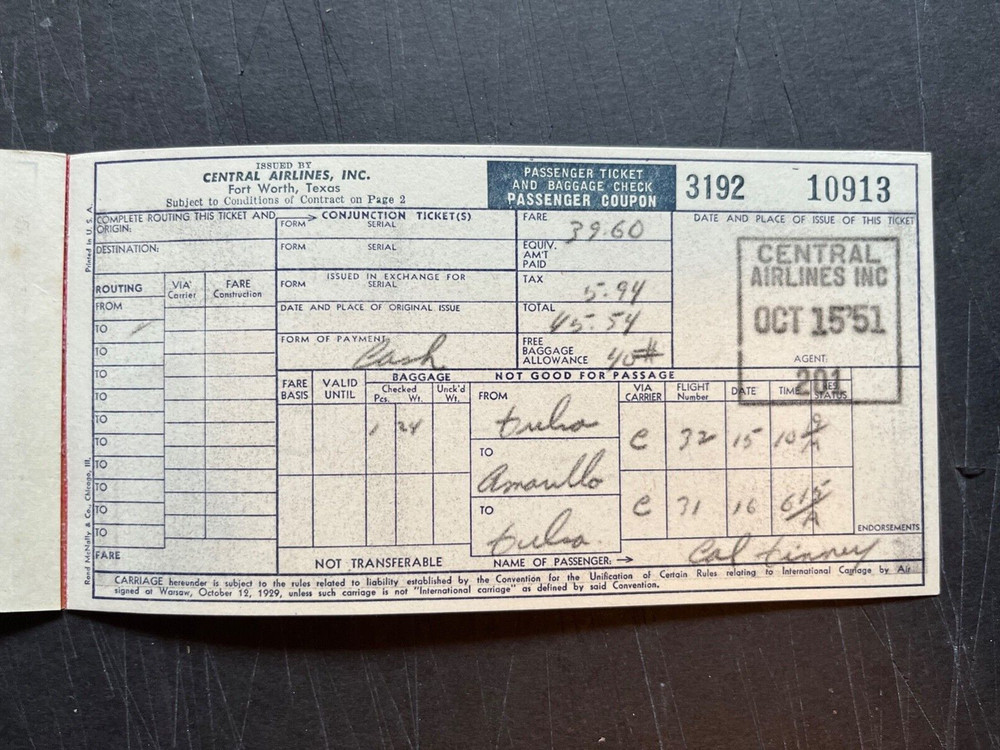 ISSUED BY
CENTRAL AIRLINES, INC.
Fort Worth, Texas
Subject to Conditions of Contract on Page 2
PASSENGER TICKET
AND BAGGAGE CHECK
PASSENGER COUPON
3192 10913
COMPLETE ROUTING THIS TICKET AND → CONJUNCTION TICKET(S)
FORM SERIAL
ORIGIN:
DESTINATION:
FORM SERIAL
ISSUED IN EXCHANGE FOR
FORM SERIAL
DATE AND PLACE OF ORIGINAL ISSUE
FORM OF PAYMENT
Cash
FARE
39.60
EQUIV.
AM'T
PAID
TAX
5.94
TOTAL
45.54
FREE
BAGGAGE
ALLOWANCE
40#
DATE AND PLACE OF ISSUE OF THIS TICKET
CENTRAL
AIRLINES INC
OCT 15'51
AGENT
201
ROUTING
VIA
Carrier
FARE
Construction
FROM
TO
TO
TO
TO
TO
TO
TO
TO
TO
TO
FARE
NOT GOOD FOR PASSAGE
FARE
BASIS
VALID
UNTIL
BAGGAGE
Checked
Pcs. Wt.
Unck'd
Wt.
1 24
FROM
Tulsa
TO
Amarillo
TO
Tulsa
VIA
CARRIER
FLIGHT
Number
DATE
TIME
RES.
STATUS
C 32 15 10
C 31 16 6 15/A
ENDORSEMENTS
NOT TRANSFERABLE
NAME OF PASSENGER: →
Cal Finney
CARRIAGE hereunder is subject to the rules related to liability established by the Convention for the Unification of Certain Rules relating to International Carriage by Air
signed at Warsaw, October 12, 1929, unless such carriage is not "International carriage" as defined by said Convention.
Printed in U. S. A.
Rand McNally & Co., Chicago, Ill.